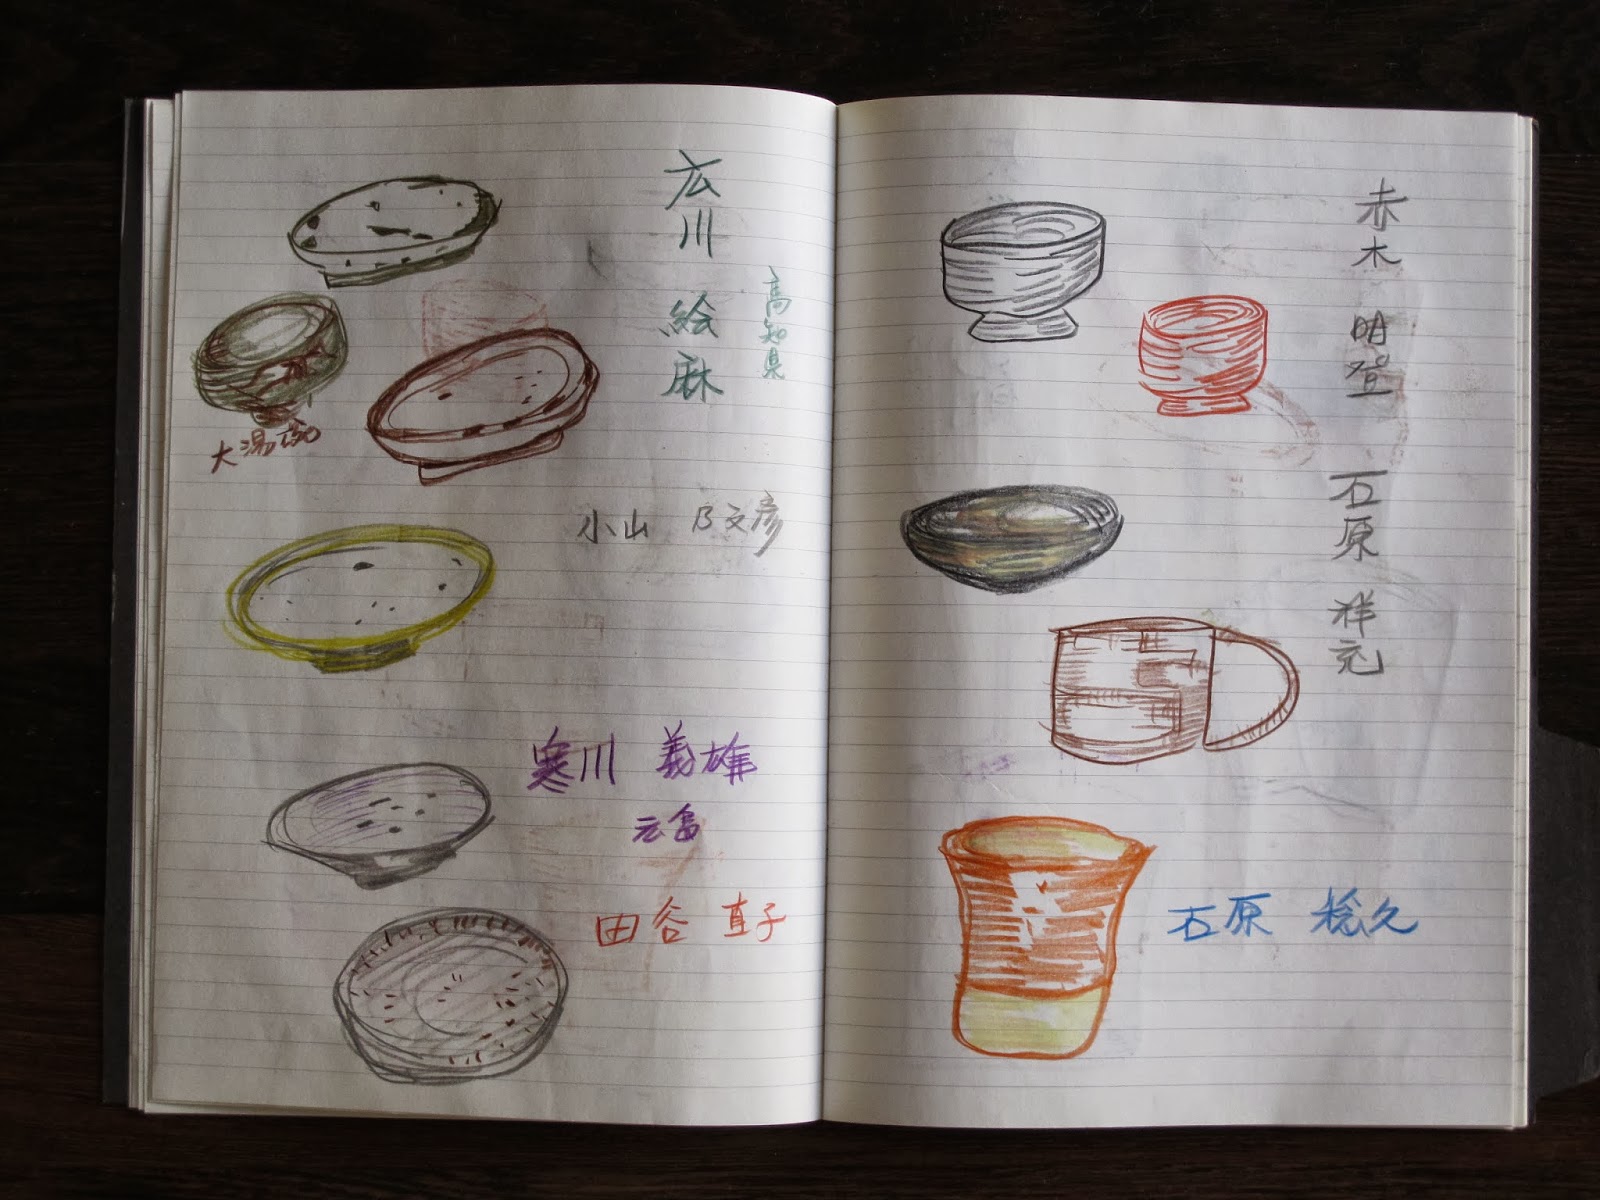 広川 絵麻
高知県
大湯碗
小山 乃文彦
寒川 義雄
広島
田谷 直子
赤木 明登
石原 祥充
石原 稔久